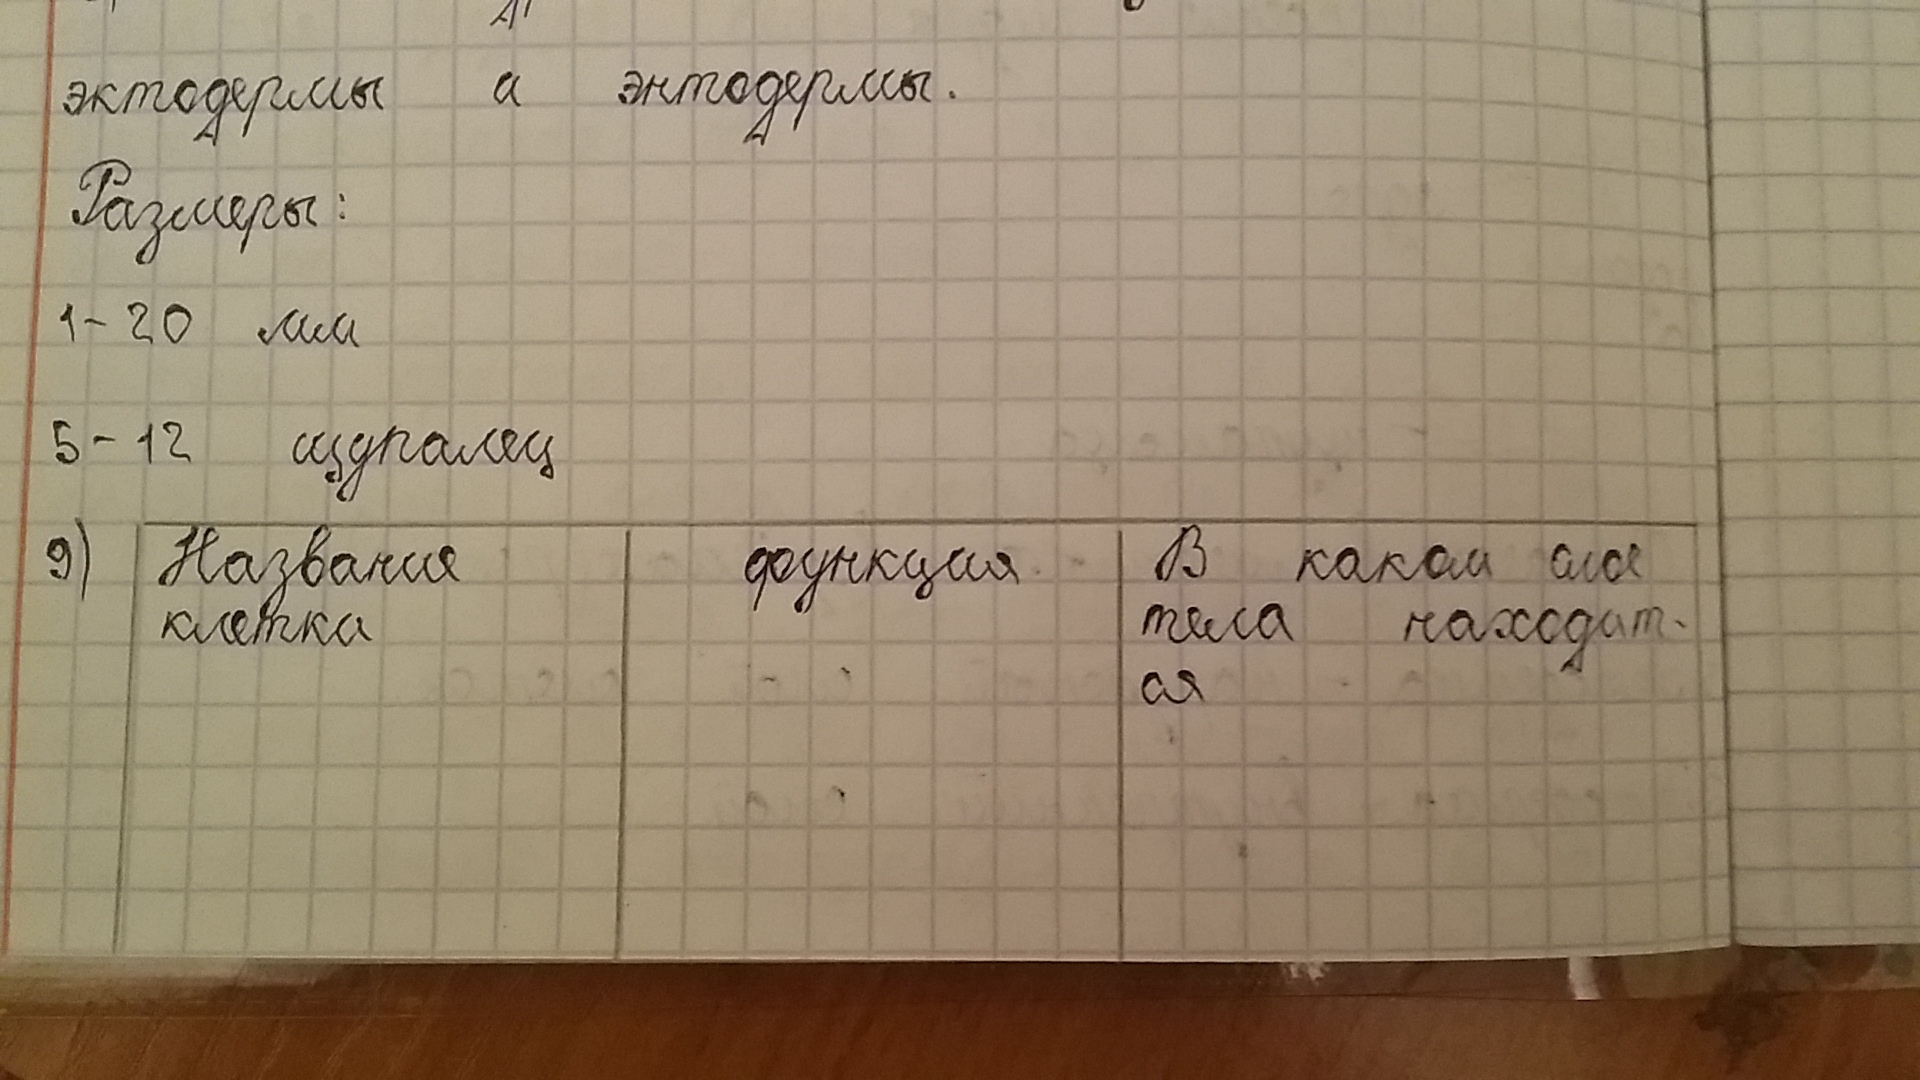 эктодермы и энтодермы.
Размеры:
1-20 мм
5-12 щупалец
9) Название функция В каком слое
клетки тела находит-
ся